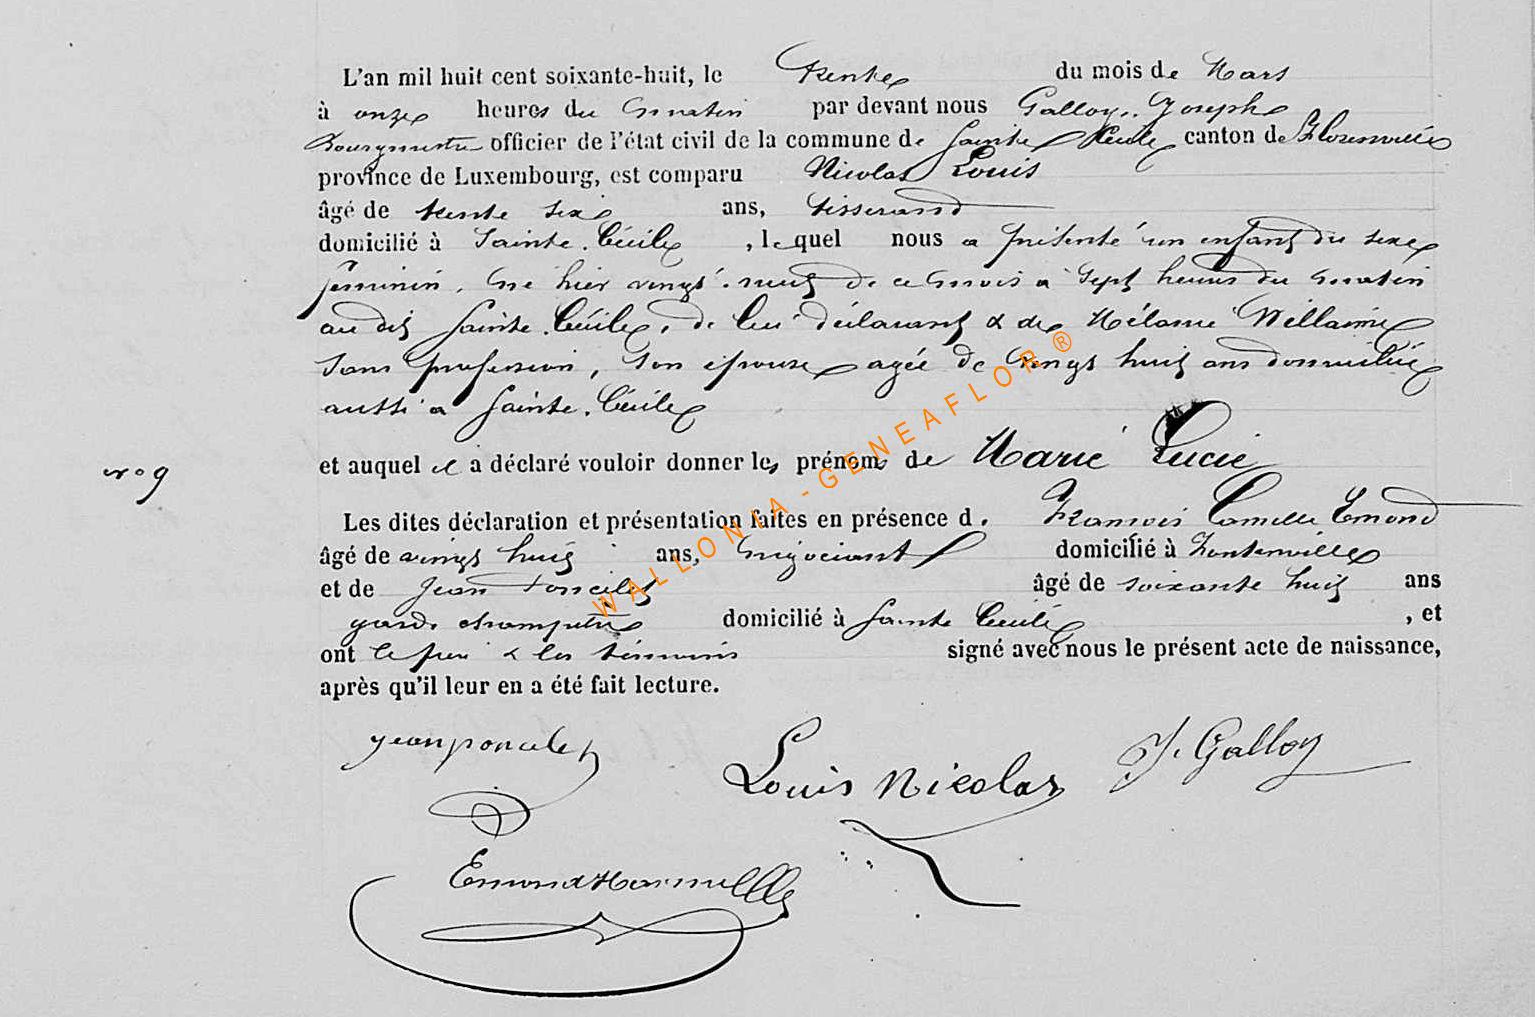 L'an mil huit cent soixante-huit, le trente du mois de Mars
à onze heures du matin par devant nous Galloy, Joseph
Bourgmestre officier de l'état civil de la commune de Sainte Cécile canton de Florenville
province de Luxembourg, est comparu Nicolas Louis
âgé de trente six ans, tisserand
domicilié à Sainte.Cécile, lequel nous a présenté un enfant du sexe
féminin, née hier vingt-neuf de ce mois à sept heures du matin
au dit Sainte.Cécile, de lui déclarant & de Mélanie Willaime
sans profession, son épouse agée de vingt huit ans domiciliée
aussi à Sainte.Cécile
et auquel il a déclaré vouloir donner les prénoms de Marie Lucie
n° 9
Les dites déclaration et présentation faites en présence d. François Camille Emond
âgé de vingt huit ans, négociant domicilié à Fontenville
et de Jean Poncelet âgé de soixante huit ans
garde champêtre domicilié à Sainte Cécile, et
ont le père & les témoins signé avec nous le présent acte de naissance,
après qu'il leur en a été fait lecture.
jean poncelet
Louis Nicolas
J. Galloy
Emond
WALLONIA - GENEAFLOR ®